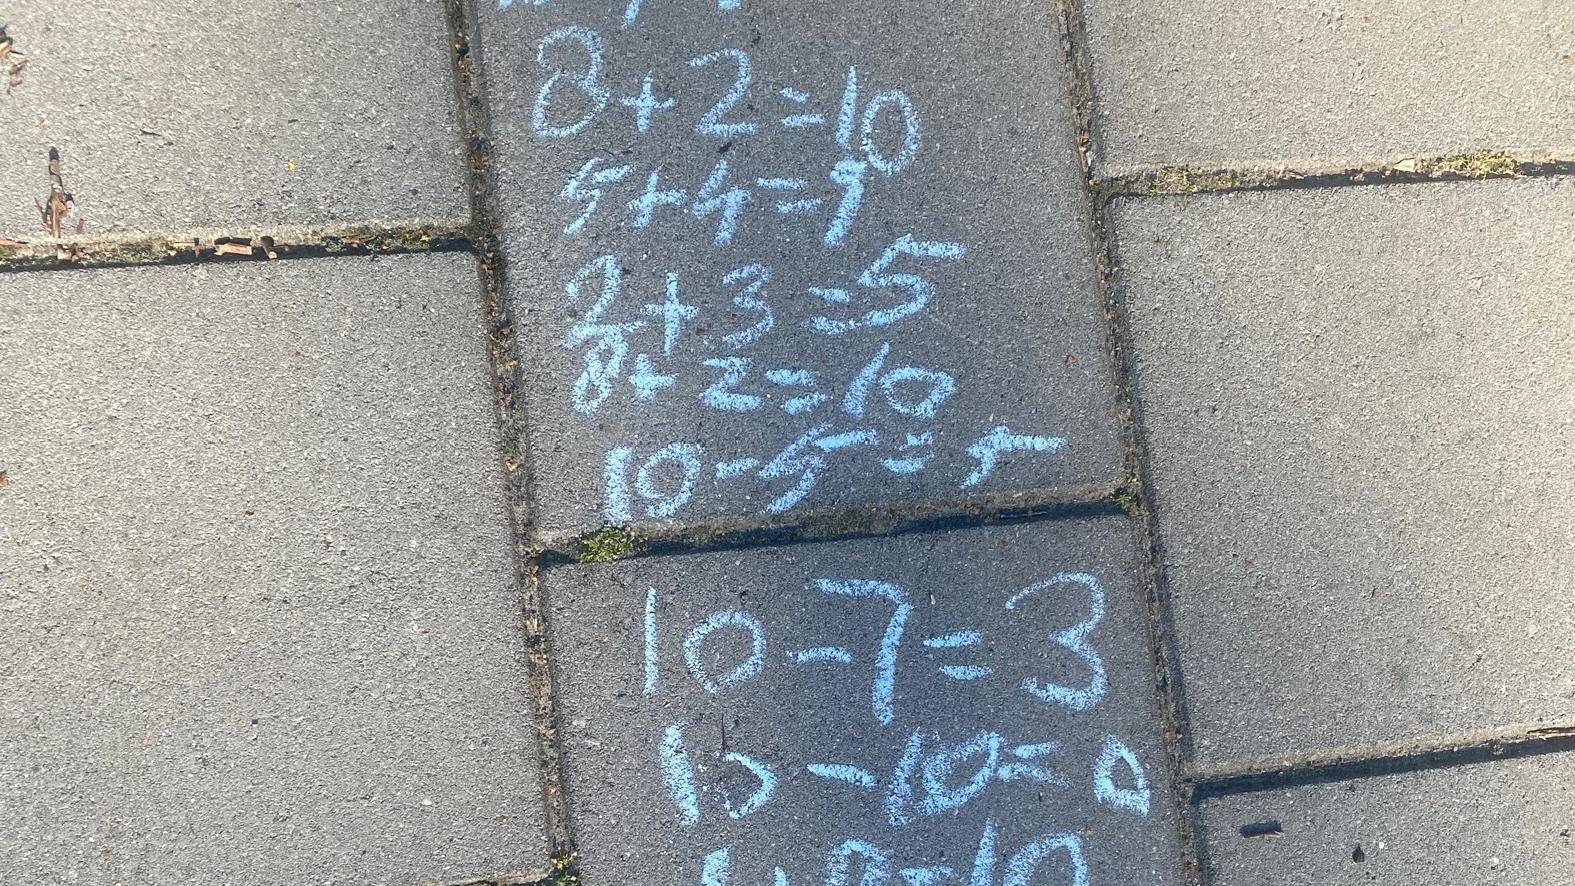 8+2=10
5+4=9
2+3=5
8+2=10
10-5=5
10-7=3
10-10=0